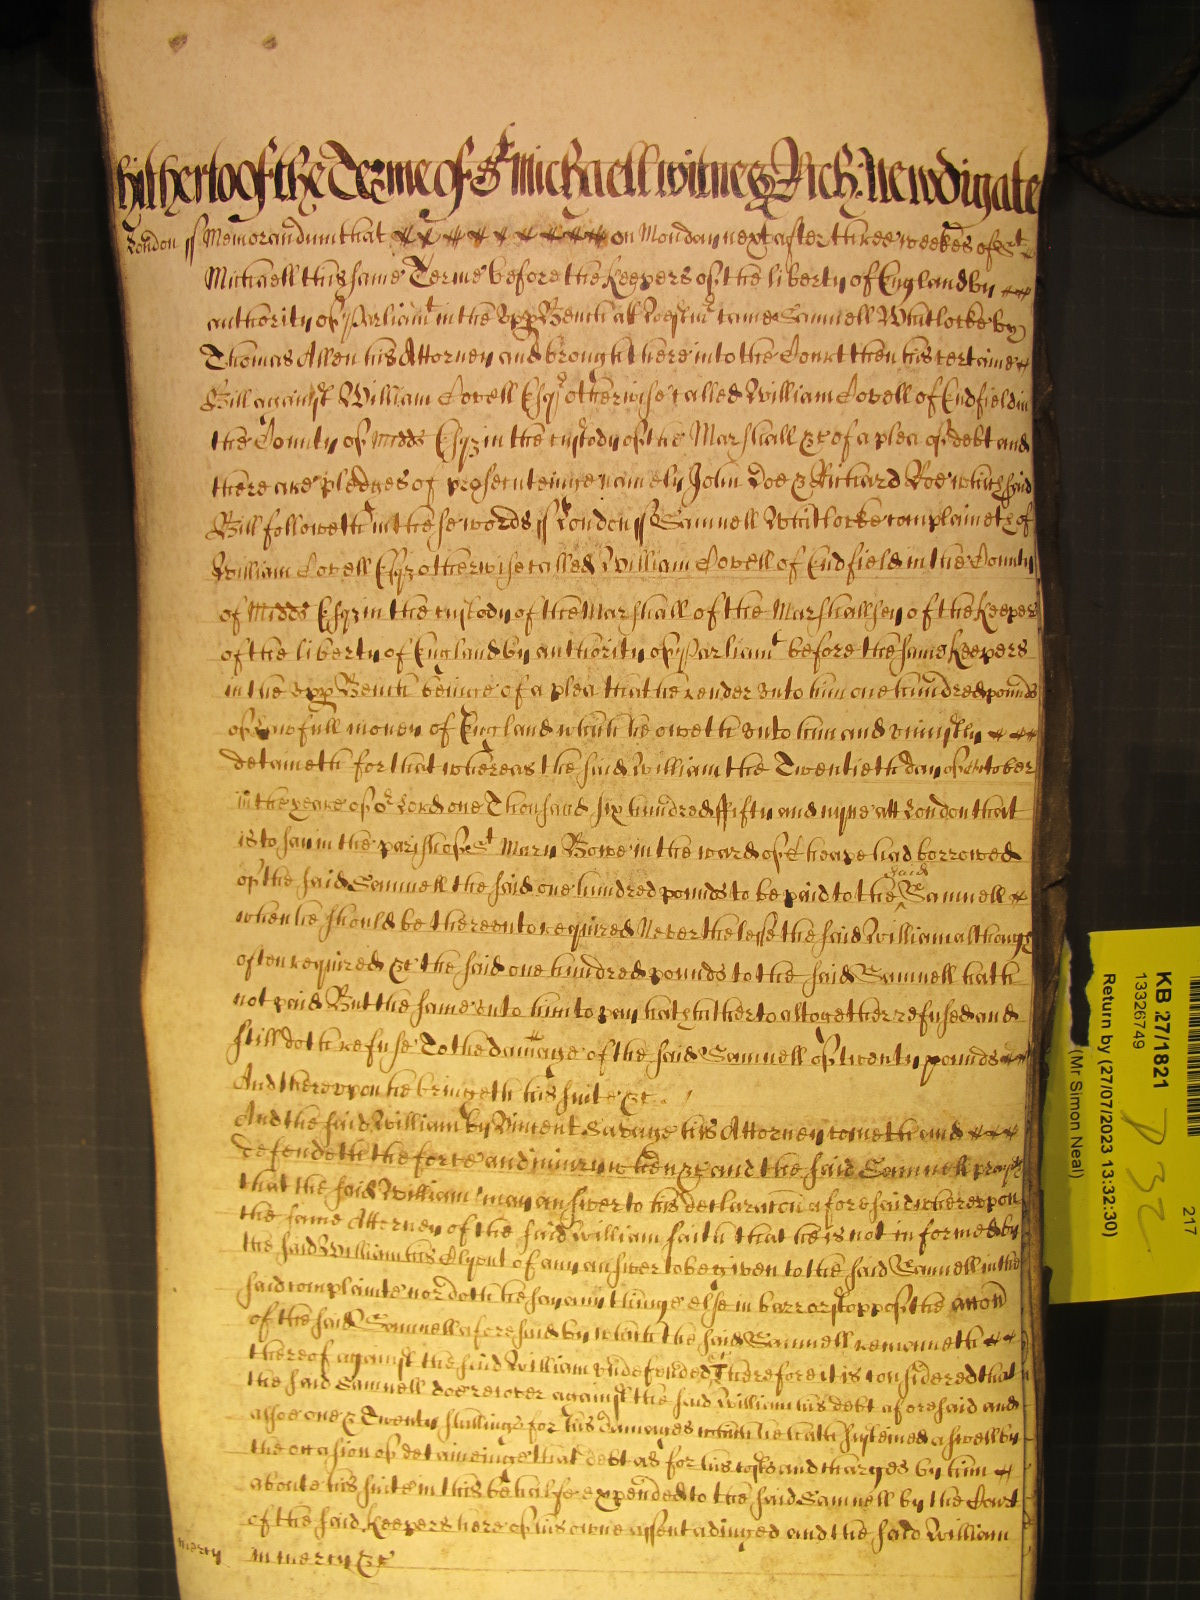 hitherto of the Terme of St Michaell witnes Rich: Newdigate
London ss Memorandum that on Monday next after three weekes of St
Michaell this same Terme before the Keepers of the liberty of England by
authority of Parliamt in the Upp Bench att Westmr came Samuell Whitlocke by
Thomas Allen his Attorney and brought here into the Court then his certaine
Bill against William Covell Esqr otherwise called William Covell of Endfield in
the County of Midds Esqr in the custody of the Marshall &c of a plea of debt and
there are pledges of prosecuteinge namely John Doe & Richard Roe which said
Bill followeth in these words ss London ss Samuell Whitlocke complaineth of
William Covell Esqr otherwise called William Covell of Endfield in the County
of Midds Esqr in the custody of the Marshall of the Marshallsey of the Keepers
of the liberty of England by authority of Parliamt before the same Keepers
in the Upp Bench beinge of a plea that he render unto him one hundred pounds
of lawfull money of England which he oweth unto him and uniustly
detaineth for that whereas the said William the Twentieth day of October
in the yeare of or Lord one Thousand six hundred fifty and nyne att London that
is to say in the parish of St Mary Bowe in the ward of Cheape had borrowed
of the said Samuell the said one hundred pounds to be paid to the said Samuell
when he should be thereunto required Neverthelesse the said William although
often required &c the said one hundred pounds to the said Samuell hath
not paid But the same unto him to pay hath hitherto altogether refused and
still doth refuse To the damage of the said Samuell of twenty pounds
And thereupon he bringeth his suite &c.
And the said William by Vincent Savage his Attorney cometh and
defendeth the force and iniury when &c and the said Samuell prayeth
that the said William may answer to his declaracon aforesaid whereupon
the same Attorney of the said William saith that he is not informed by
the said William his Clyent of any answer to be given to the said Samuell in the
said complainte nor doth he say any thinge else in barr or stopp of the accon
of the said Samuell aforesaid by which the said Samuell remaineth
thereof against the said William undefended Therefore it is considered that
the said Samuell doe recover against the said William his debt aforesaid and
alsoe one & Twenty shillings for his damages which he hath susteined aswell by
the occasion of detaineinge that debt as for his costs and charges by him
aboute his suite in this behalfe expended to the said Samuell by the Court
of the said Keepers here of his owne assent adiudged and the said William
mercy in mercy &c
217
KB 27/1821
13326749
Return by (27/07/2023 13:32:30)
(Mr Simon Neal)